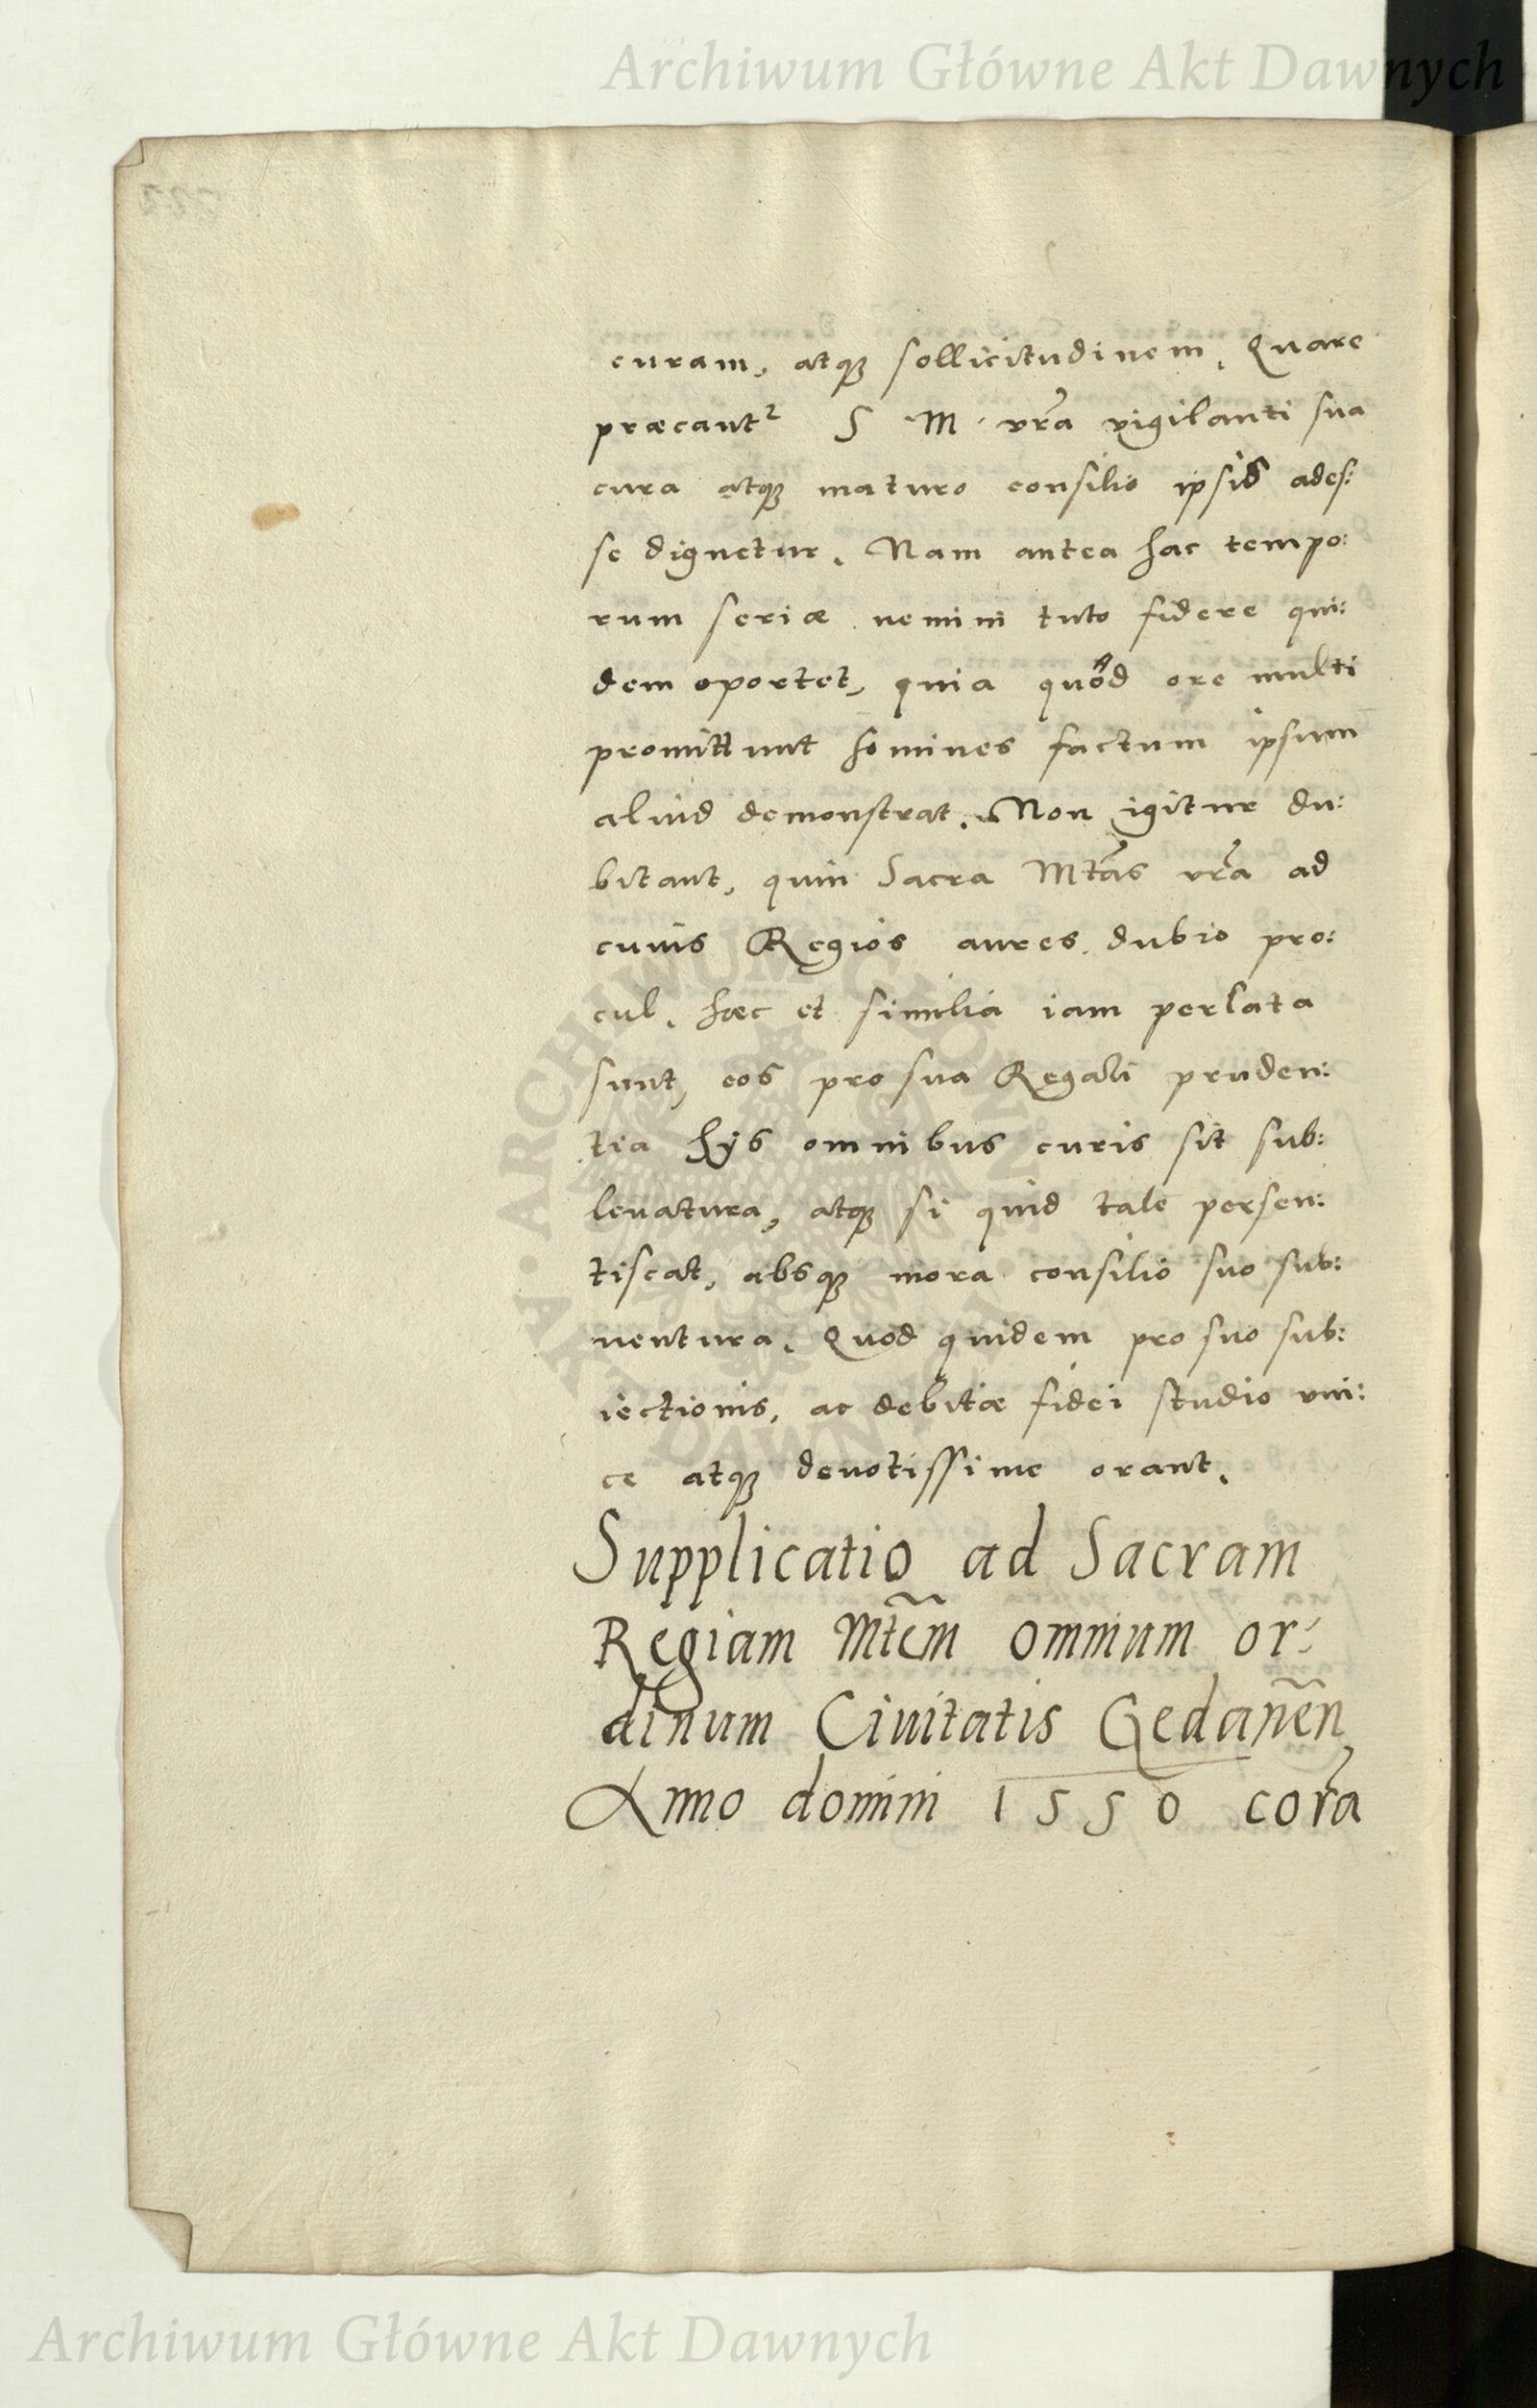 Archiwum Główne Akt Dawnych
curam, atqꝫ sollicitudinem. Quare
præcantᷣ S M vr̃a vigilanti sua
cura atqꝫ maturo consilio ipsis ades:
se dignetur. Nam antea hac tempo:
rum seriæ nemini tuto fidere qui:
dem oportet, quia quod ore multi
promittunt homines factum ipsum
aliud demonstrat. Non igitur du:
bitant, quin Sacra Mtãs vr̃a ad
cuius Regios aures dubio pro:
cul, hæc et similia iam perlata
sunt, eos pro sua Regali pruden:
tia hijs omnibus curis sit sub:
leuatura, atqꝫ si quid tale persen:
tiscat, absqꝫ mora consilio suo sub:
uentura. Quod quidem pro suo sub:
iectionis, ac debitæ fidei studio vni:
ce atqꝫ deuotissime orant.
Supplicatio ad Sacram
Regiam Mtẽm omnium or:
dinum Ciuitatis Gedanẽn
Anno domini 1550 cor̃a
ARCHIWUM GŁÓWNE AKT DAWNYCH
Archiwum Główne Akt Dawnych